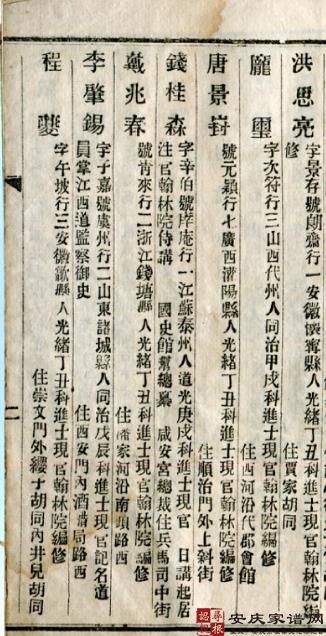 洪思亮 字景存號朗齋行一安徽懷寧縣人光緒丁丑科進士現官翰林院編修 住賈家胡同
龐璽 字次符行三山西代州人同治甲戌科進士現官翰林院編修 住西河沿代郡會館
唐景崶 號元穎行七廣西灌陽縣人光緒丁丑科進士現官翰林院編修 住順治門外上斜街
錢桂森 字辛伯號犀庵行一江蘇泰州人道光庚戌科進士現官 日講起居注官翰林院侍講 國史館幫總纂 咸安宮總裁住兵馬司中街
戴兆春 號青來行二浙江錢塘縣人光緒丁丑科進士現官翰林院編修 住潘家河沿南頭路西
李肇錫 字子嘉號虞州行二山東諸城縣人同治戊辰科進士現官記名道員掌江西道監察御史 住西安門內酒醋局路西
程夔 字午坡行三安徽歙縣人光緒丁丑科進士現官翰林院編修 住崇文門外纓子胡同內井兒胡同
二
尋根
安庆家谱网